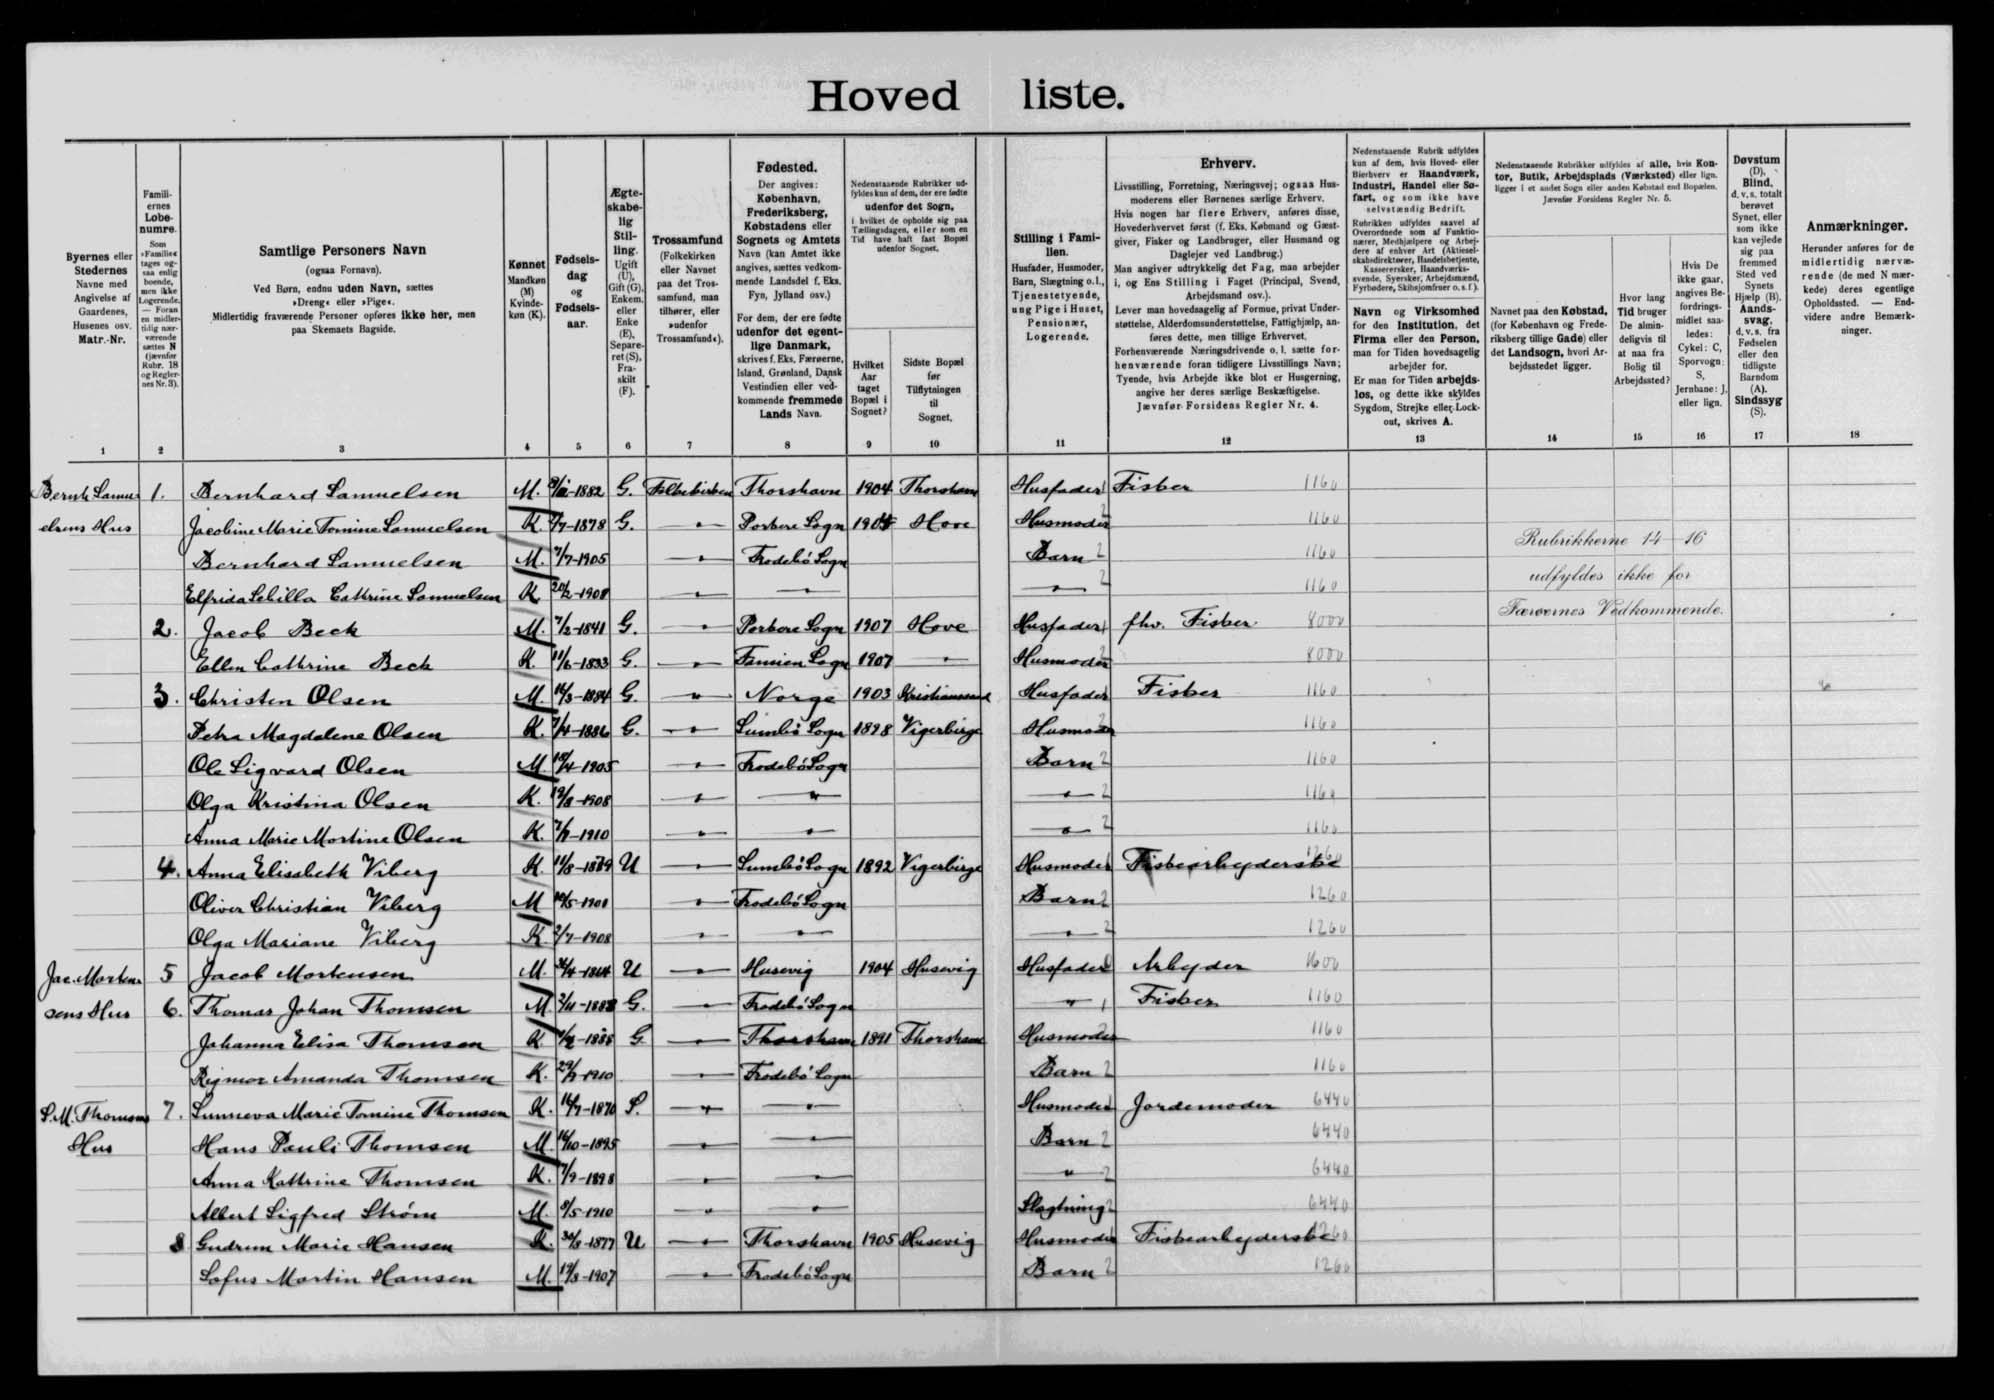 Hoved liste.
Byernes eller Stedernes Navne med Angivelse af Gaardenes, Husenes osv. Matr.-Nr.
Familiernes Løbenumre.
Som »Familie« tages ogsaa enlig boende, men ikke Logerende. — Foran en midlertidig nærværende sættes N (jævnfør Rubr. 18 og Regernes Nr. 3).
Samtlige Personers Navn
(ogsaa Fornavn).
Ved Børn, endnu uden Navn, sættes »Dreng« eller »Pige«.
Midlertidig fraværende Personer opføres ikke her, men paa Skemaets Bagside.
Kønnet Mandkøn (M) Kvindekøn (K).
Fødselsdag og Fødselsaar.
Ægteskabelig Stilling. Ugift (U), Gift (G), Enkem. eller Enke (E), Separeret (S), Fraskilt (F).
Trossamfund (Folkekirken eller Navnet paa det Trossamfund, man tilhører, eller »udenfor Trossamfund«).
Fødested.
Der angives: København, Frederiksberg, Købstadens eller Sognets og Amtets Navn (kan Amtet ikke angives, sættes vedkommende Landsdel f. Eks. Fyn, Jylland osv.)
For dem, der ere fødte udenfor det egentlige Danmark, skrives f. Eks. Færøerne, Island, Grønland, Dansk Vestindien eller vedkommende fremmede Lands Navn.
Nedenstaaende Rubrikker udfyldes kun af dem, der ere fødte udenfor det Sogn, i hvilket de opholde sig paa Tællingsdagen, eller som en Tid have haft fast Bopæl udenfor Sognet.
Hvilket Aar taget Bopæl i Sognet?
Sidste Bopæl før Tilflytningen til Sognet.
Stilling i Familien.
Husfader, Husmoder, Barn, Slægtning o. l., Tjenestetyende, ung Pige i Huset, Pensionær, Logerende.
Erhverv.
Livsstilling, Forretning, Næringsvej; ogsaa Husmoderens eller Børnenes særlige Erhverv.
Hvis nogen har flere Erhverv, anføres disse, Hovederhvervet først (f. Eks. Købmand og Gæstgiver, Fisker og Landbruger, eller Husmand og Daglejer ved Landbrug.)
Man angiver udtrykkelig det Fag, man arbejder i, og Ens Stilling i Faget (Principal, Svend, Arbejdsmand osv.).
Lever man hovedsagelig af Formue, privat Understøttelse, Alderdomsunderstøttelse, Fattighjælp, anføres dette, men tillige Erhvervet.
Forhenværende Næringsdrivende o. l. sætte forhenværende foran tidligere Livsstillings Navn; Tyende, hvis Arbejde ikke blot er Husgerning, angive her deres særlige Beskæftigelse.
Jævnfør Forsidens Regler Nr. 4.
Nedenstaaende Rubrik udfyldes kun af dem, hvis Hoved- eller Bierhverv er Haandværk, Industri, Handel eller Søfart, og som ikke have selvstændig Bedrift.
Rubrikken udfyldes saavel af Overordnede som af Funktionærer, Medhjælpere og Arbejdere af enhver Art (Aktieselskabsdirektører, Handelsbetjente, Kasserersker, Haandværkssvende, Syersker, Arbejdsmænd, Fyrbødere, Skibsjomfruer o. s. f.).
Navn og Virksomhed for den Institution, det Firma eller den Person, man for Tiden hovedsagelig arbejder for.
Er man for Tiden arbejdsløs, og dette ikke skyldes Sygdom, Strejke eller Lockout, skrives A.
Nedenstaaende Rubrikker udfyldes af alle, hvis Kontor, Butik, Arbejdsplads (Værksted) eller lign. ligger i et andet Sogn eller anden Købstad end Bopælen.
Jævnfør Forsidens Regler Nr. 5.
Navnet paa den Købstad, (for København og Frederiksberg tillige Gade) eller det Landsogn, hvori Arbejdsstedet ligger.
Hvor lang Tid bruger De almindeligvis til at naa fra Bolig til Arbejdssted?
Hvis De ikke gaar, angives Befordringsmidlet saaledes: Cykel: C, Sporvogn: S, Jernbane: J, eller lign.
Døvstum (D), Blind, d. v. s. totalt berøvet Synet, eller som ikke kan vejlede sig paa fremmed Sted ved Synets Hjælp (B). Aandssvag, d. v. s. fra Fødselen eller den tidligste Barndom (A). Sindssyg (S).
Anmærkninger.
Herunder anføres for de midlertidig nærværende (de med N mærkede) deres egentlige Opholdssted. — Endvidere andre Bemærkninger.
1 2 3 4 5 6 7 8 9 10 11 12 13 14 15 16 17 18
Bernh Samu- 1. Bernhard Samuelsen M. 1882 G. Folkekirken Thorshavn 1904 Thorshavn Husfader 1 Fisker 1160
elsens Hus Jacobine Marie Tomine Samuelsen K. 1878 G. " Porkere Sogn 1904 Hove Husmoder 2 1160
Bernhard Samuelsen M. 7/7-1905 " Frodebö Sogn Barn 2 1160
Rubrikkerne 14-16
Elfrida Sebilla Cathrine Samuelsen K 1908 " " " 2 1160
udfyldes ikke for
Færøernes Vedkommende.
2. Jacob Beck M. 7/2-1841 G. " Porkere Sogn 1907 Hove Husfader 1 fhv. Fisker 8000
Ellen Cathrine Beck K. 11/6-1833 G. " Famien Sogn 1907 " Husmoder 2 8000
3. Christen Olsen M. 16/3-1884 G. " Norge 1903 Kristianssund Husfader 1 Fisker 1160
Petra Magdalene Olsen K. 1886 G. " Sumbö Sogn 1898 Vigerbirge Husmoder 2 1160
Ole Sigvard Olsen M. 1905 " Frodebö Sogn Barn 2 1160
Olga Kristina Olsen K. 19/8-1908 " " " 2 1160
Anna Marie Mortine Olsen K. 1910 " " " 2 1160
4. Anna Elisabeth Viberg K. 11/8-1879 U " Sumbö Sogn 1892 Vigerbirge Husmoder 1 Fiskearbejderske 1260
Oliver Christian Viberg M 1901 " Frodebö Sogn Barn 2 1260
Olga Mariane Viberg K. 2/7-1908 " " " 2 1260
Jac. Morten- 5 Jacob Mortensen M. 1864 U " Husevig 1904 Husevig Husfader 1 Arbejder 1600
sens Hus 6. Thomas Johan Thomsen M. 1888 G. " Frodebö Sogn " 1 Fisker 1160
Johanna Elisa Thomsen K 1888 G. " Thorshavn 1891 Thorshavn Husmoder 2 1160
Rigmor Amanda Thomsen K. 1910 " Frodebö Sogn Barn 2 1160
S. M. Thomsens 7. Sunneva Marie Tomine Thomsen K. 14/7-1870 S. " " Husmoder 1 Jordemoder 6440
Hus Hans Pauli Thomsen M. 16/10-1895 " " Barn 2 6440
Anna Kathrine Thomsen K. 1/9-1898 " " " 2 6440
Albert Sigfred Strøm M. 1910 " " Slægtning 2 6440
8 Gudrun Marie Hansen K. 30/8-1877 U " Thorshavn 1905 Husevig Husmoder 1 Fiskearbejderske 1260
Sofus Martin Hansen M. 19/8-1907 " Frodebö Sogn Barn 2 1260